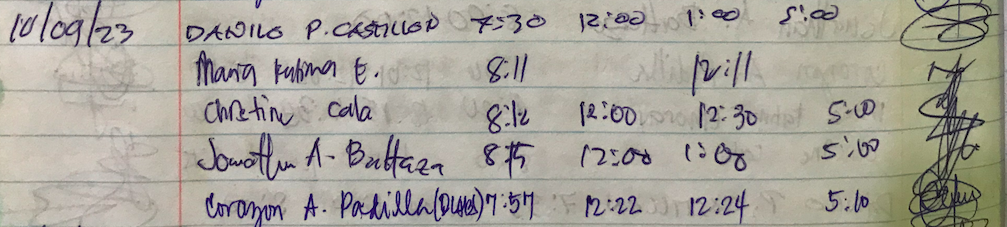 10/09/23 DANILO P. CASTILLON 7:30 12:00 1:00 5:00
Maria Fatima E. 8:11 12:11
Christine Cala 8:12 12:00 12:30 5:00
A. 8:15 12:00 1:00 5:00
Corazon A. Padilla 7:57 12:22 12:24 5:10